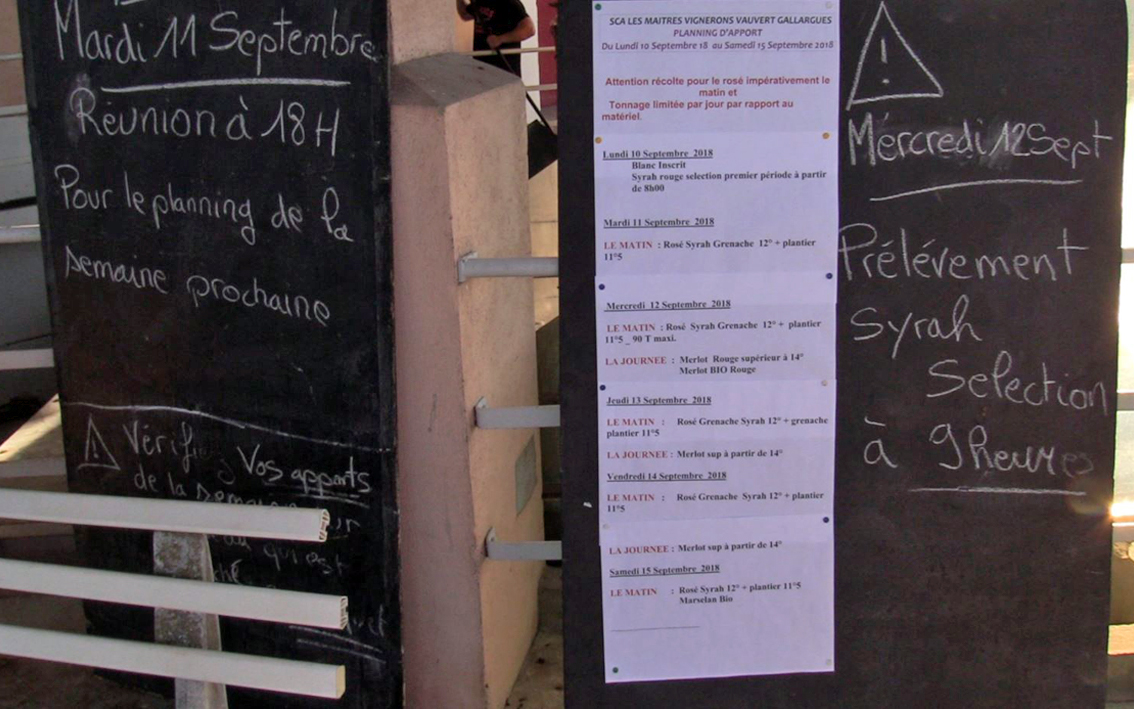 Mardi 11 Septembre
Réunion à 18H
Pour le planning de la
semaine prochaine
Vos apports
de la
qui est
SCA LES MAITRES VIGNERONS VAUVERT GALLARGUES
PLANNING D'APPORT
Du Lundi 10 Septembre 18 au Samedi 15 Septembre 2018
Attention récolte pour le rosé impérativement le
matin et
Tonnage limitée par jour par rapport au
matériel.
Lundi 10 Septembre 2018
Blanc Inscrit
Syrah rouge selection premier période à partir
de 8h00
Mardi 11 Septembre 2018
LE MATIN : Rosé Syrah Grenache 12° + plantier
11°5
Mercredi 12 Septembre 2018
LE MATIN : Rosé Syrah Grenache 12° + plantier
11°5 _ 90 T maxi.
LA JOURNEE : Merlot Rouge supérieur à 14°
Merlot BIO Rouge
Jeudi 13 Septembre 2018
LE MATIN : Rosé Grenache Syrah 12° + grenache
plantier 11°5
LA JOURNEE : Merlot sup à partir de 14°
Vendredi 14 Septembre 2018
LE MATIN : Rosé Grenache Syrah 12° + plantier
11°5
LA JOURNEE : Merlot sup à partir de 14°
Samedi 15 Septembre 2018
LE MATIN : Rosé Syrah 12° + plantier 11°5
Marselan Bio
!
Mércredi 12 Sept
Prélévement
Syrah
Selection
à 9 heures